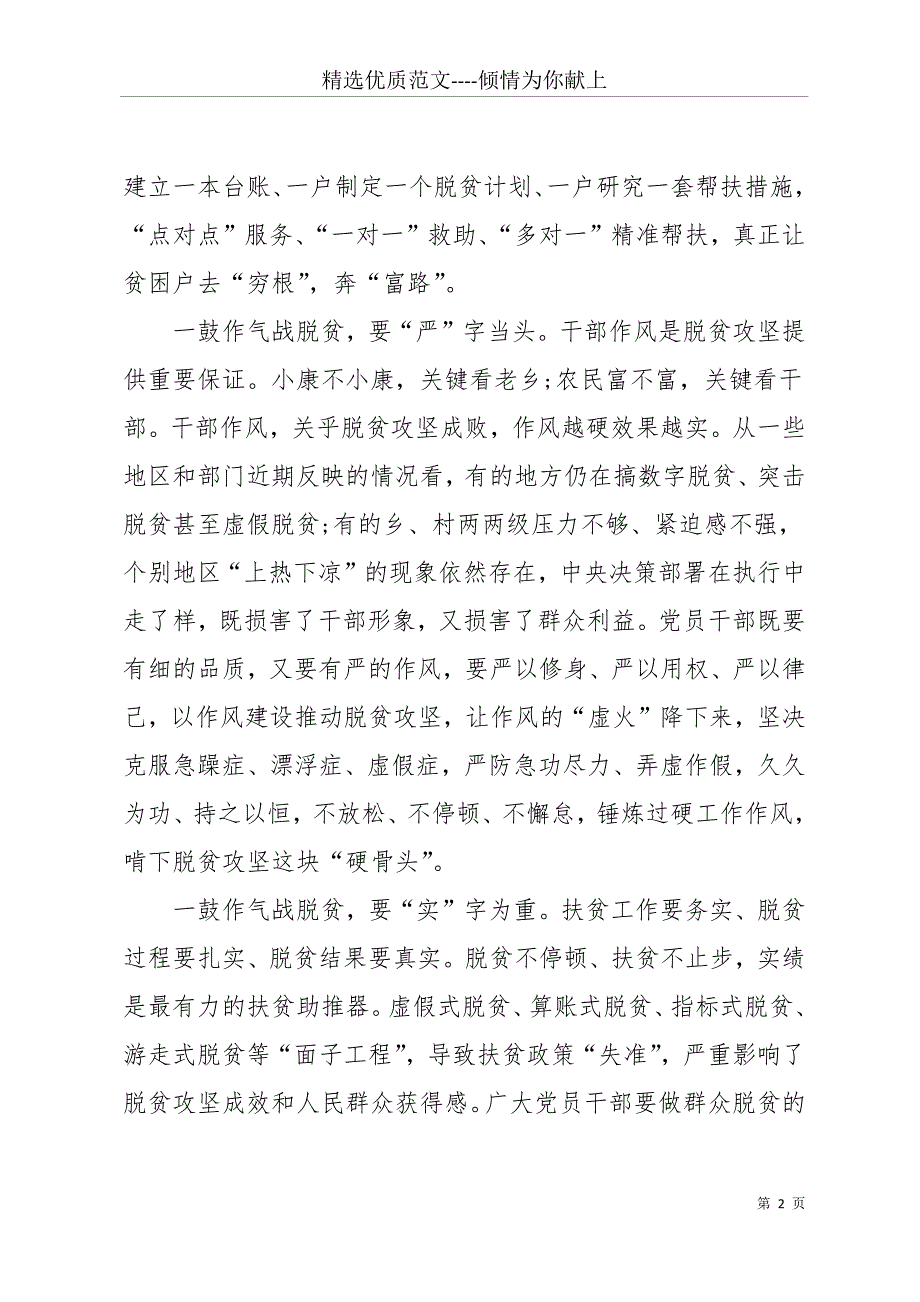 精选优质范文----倾情为你献上
建立一本台账、一户制定一个脱贫计划、一户研究一套帮扶措施，
“点对点”服务、“一对一”救助、“多对一”精准帮扶，真正让
贫困户去“穷根”，奔“富路”。
一鼓作气战脱贫，要“严”字当头。干部作风是脱贫攻坚提
供重要保证。小康不小康，关键看老乡;农民富不富，关键看干
部。干部作风，关乎脱贫攻坚成败，作风越硬效果越实。从一些
地区和部门近期反映的情况看，有的地方仍在搞数字脱贫、突击
脱贫甚至虚假脱贫;有的乡、村两两级压力不够、紧迫感不强，
个别地区“上热下凉”的现象依然存在，中央决策部署在执行中
走了样，既损害了干部形象，又损害了群众利益。党员干部既要
有细的品质，又要有严的作风，要严以修身、严以用权、严以律
己，以作风建设推动脱贫攻坚，让作风的“虚火”降下来，坚决
克服急躁症、漂浮症、虚假症，严防急功尽力、弄虚作假，久久
为功、持之以恒，不放松、不停顿、不懈怠，锤炼过硬工作作风，
啃下脱贫攻坚这块“硬骨头”。
一鼓作气战脱贫，要“实”字为重。扶贫工作要务实、脱贫
过程要扎实、脱贫结果要真实。脱贫不停顿、扶贫不止步，实绩
是最有力的扶贫助推器。虚假式脱贫、算账式脱贫、指标式脱贫、
游走式脱贫等“面子工程”，导致扶贫政策“失准”，严重影响了
脱贫攻坚成效和人民群众获得感。广大党员干部要做群众脱贫的
第 2 页